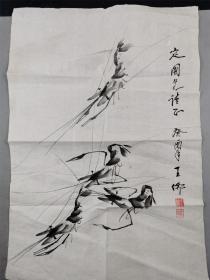 定国兄请正
癸酉年 王